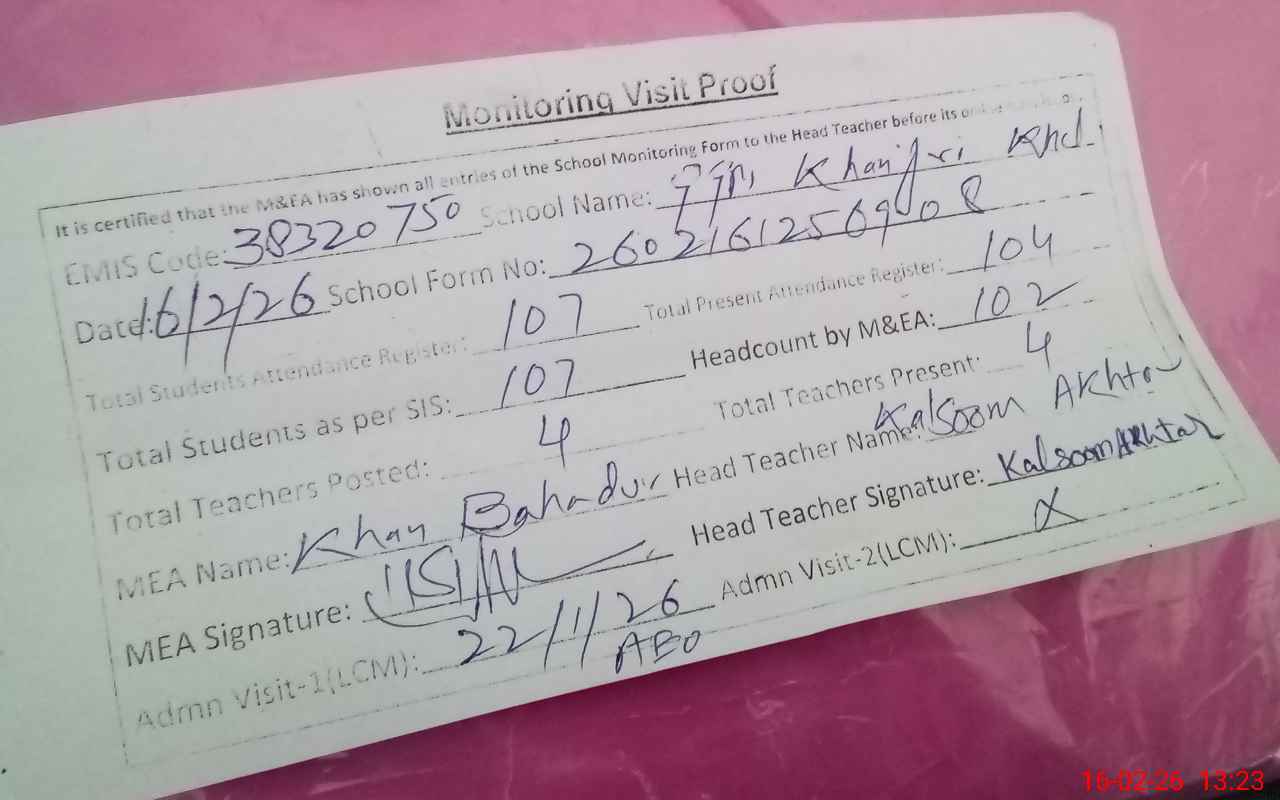 Monitoring Visit Proof
It is certified that the M&EA has shown all entries of the School Monitoring Form to the Head Teacher before its
EMIS Code: 38320750 School Name: Khanjri Khd.
Date: 16/2/26 School Form No: 26021612569008
Total Students Attendance Register: 107 Total Present Attendance Register: 104
Total Students as per SIS: 107 Headcount by M&EA: 102
Total Teachers Posted: 4 Total Teachers Present: 4
MEA Name: Khan Bahadur Head Teacher Name: Kalsoom Akhtar
MEA Signature: Head Teacher Signature: Kalsoom Akhtar
Admn Visit-1(LCM): 22/1/26 Admn Visit-2(LCM): X
AEO
16-02-26 13:23